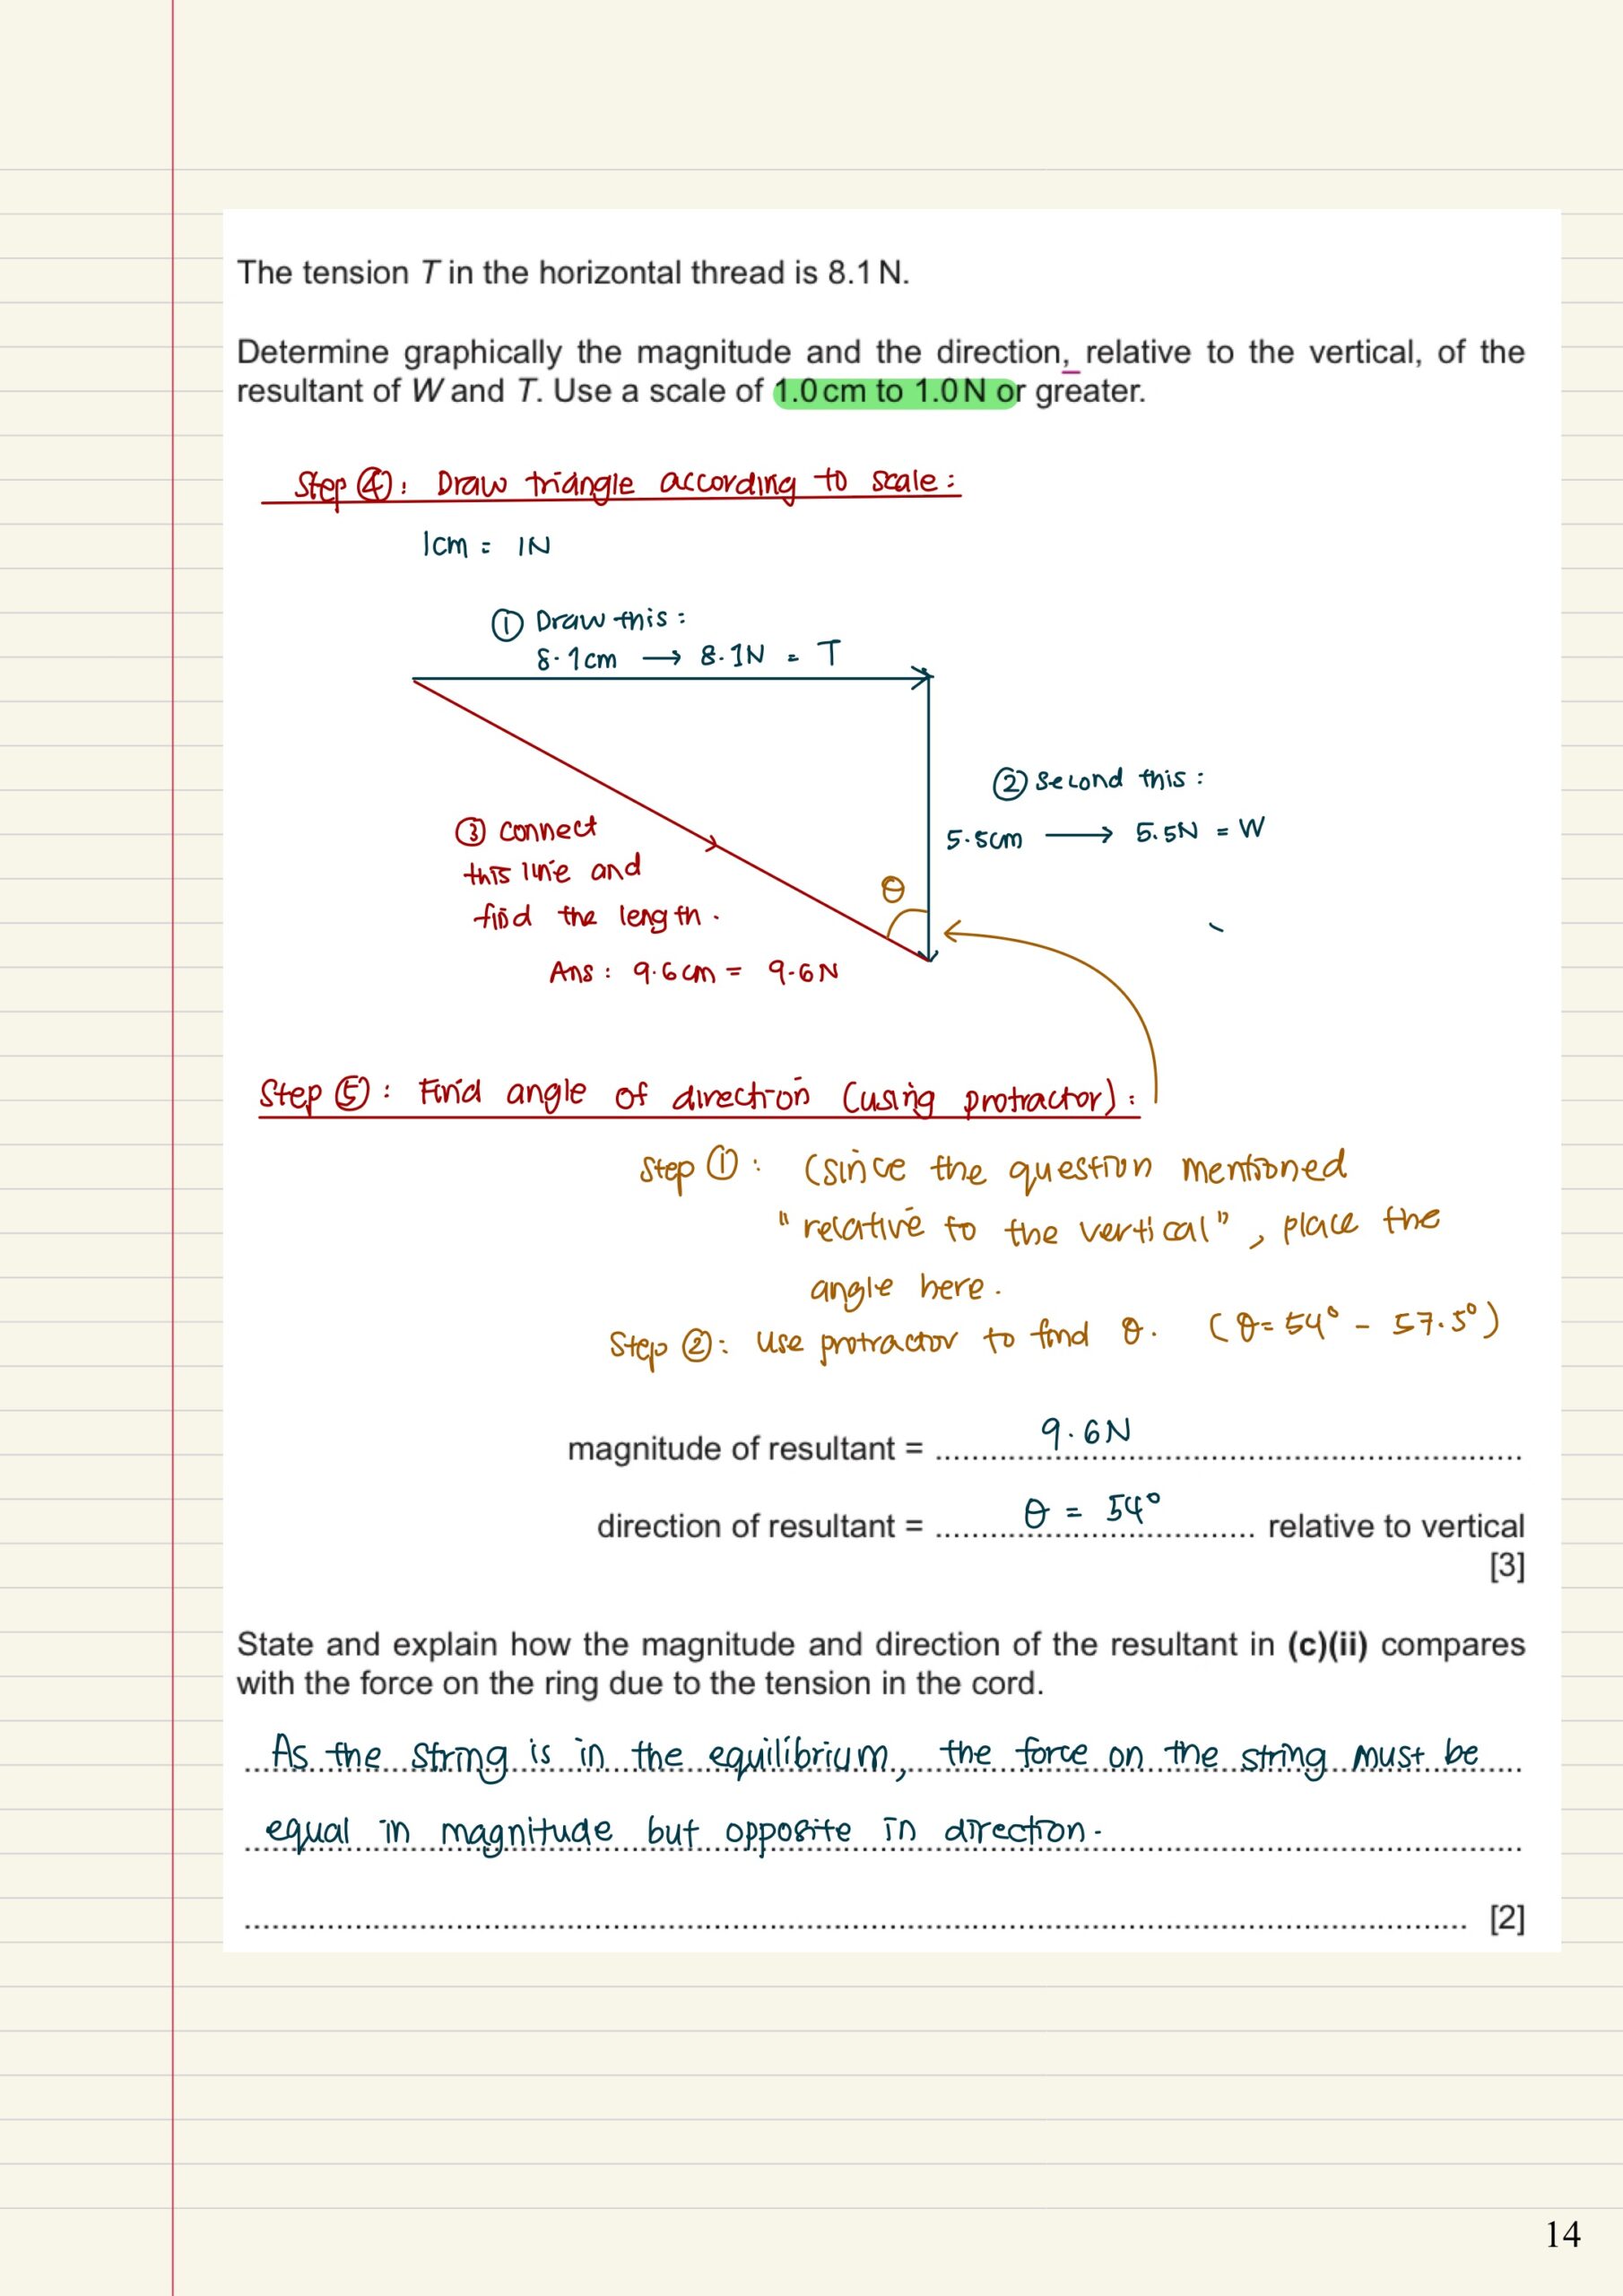 The tension T in the horizontal thread is 8.1 N.
Determine graphically the magnitude and the direction, relative to the vertical, of the
resultant of W and T. Use a scale of 1.0 cm to 1.0 N or greater.
Step ④: Draw triangle according to scale:
1cm = 1N
① Draw this:
8.1cm → 8.1N = T
② Second this:
5.5cm → 5.5N = W
③ Connect
this line and
find the length.
Ans: 9.6cm = 9.6N
θ
Step ⑤: Find angle of direction (using protractor):
Step ①: (since the question mentioned
"relative to the vertical", place the
angle here.
Step ②: Use protractor to find θ. (θ= 54° - 57.5°)
magnitude of resultant = 9.6N
direction of resultant = θ = 54° relative to vertical
[3]
State and explain how the magnitude and direction of the resultant in (c)(ii) compares
with the force on the ring due to the tension in the cord.
As the string is in the equilibrium, the force on the string must be
equal in magnitude but opposite in direction.
[2]
14